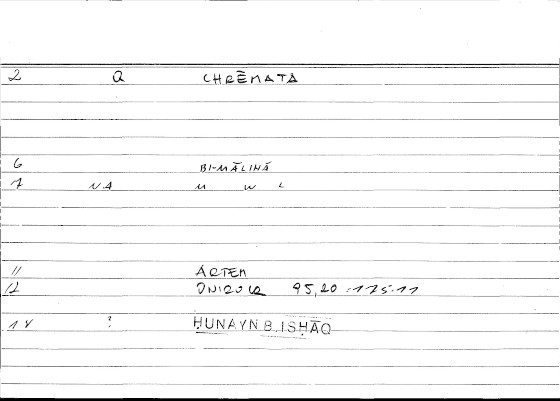 2 Q CHRĒMATA
6 BI-MĀLIHĀ
7 NA M W L
11 ARTEM
12 ONIROCR 95,20 :175.11
14 ? ḤUNAYN B. ISḤĀQ